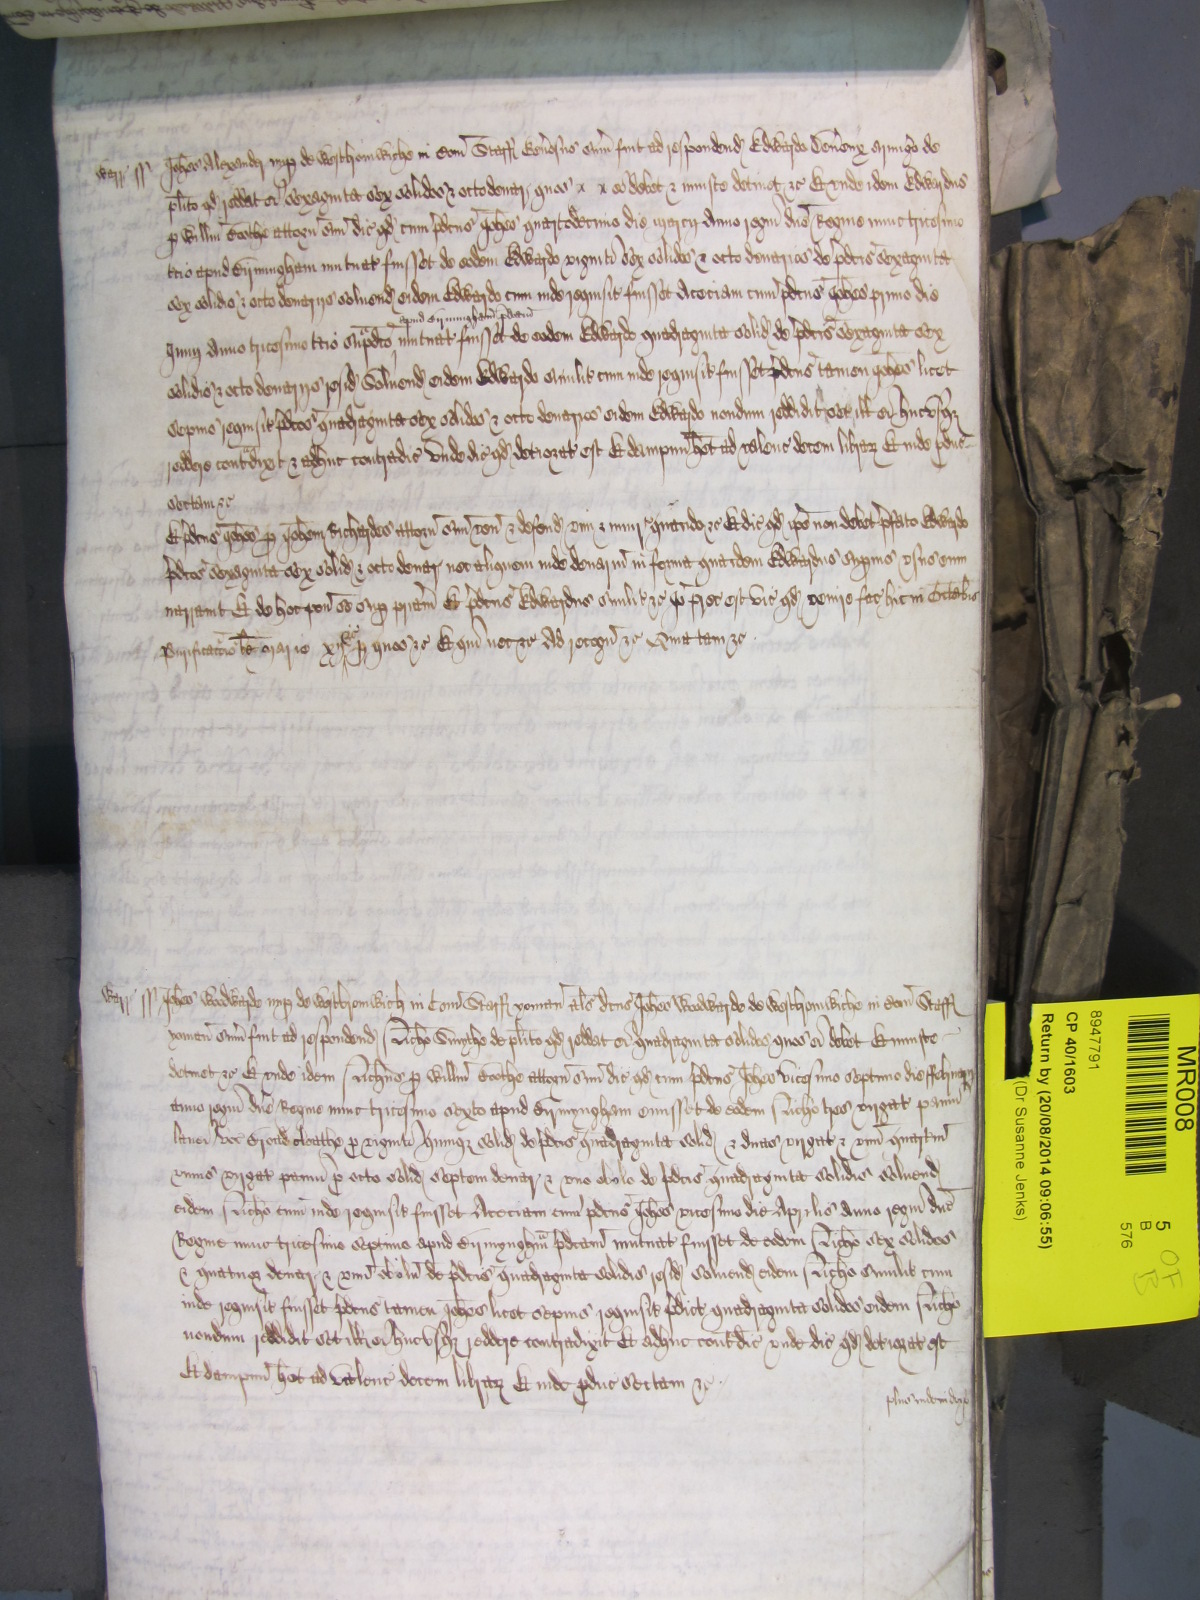 Warr ss Johes Alexander nup de Westhomwiche in Com Staff sum fuit ad respondend Edwardo armigo de
plito qd reddat ei sexaginta sex solidos & octo denar quos ei debet & iniuste detinet &c Et unde idem Edwardus
p Willm Boothe attorn suu dic qd cum pdcus Johes quartodecimo die anno regni dne Regine nunc tricesimo
tcio apud Birmingham mutuat fuisset de eodem Edwardo viginti sex solidos & octo denarios de pdcis sexaginta
sex solidis & octo denarijs solvend eidem Edwardo cum inde requisit fuisset Aceciam cum pdcus Johes primo die
Junij anno tricesimo tcio supdco apud Birmingham pdcam mutuat fuisset de eodem Edwardo quadraginta solid de pdcis sexaginta sex
solidis & octo denarijs resid solvend eidem Edwardo similit cum inde requisit fuisset pdcus tamen Johes licet
sepius requisit pdcos sexaginta sex solidos & octo denarios eidem Edwardo nondum reddidit set ill ei hucusqz
reddere contradixit & adhuc contradic unde dic qd deteriorat est Et dampnu het ad valenc decem librar Et inde pduc
sectam &c
Et pdcus Johes p Johem Richardes attorn suu ven & defend vim & iniur quando &c Et dic qd ipe non debet pfato Edwardo
pdcos sexaginta sex solid & octo denar nec aliquem inde denariu in forma qua idem Edwardus supius vsus eum
narravit Et de hoc pon se sup priam Et pdcus Edwardus similit &c Io prec est vic qd venire fac hic in Octabis
Purificacois be Marie xij p quos &c Et qui nec &c Ad recogn &c Quia tam &c
Warr ss Johes Woodwarde nup de Westbromwich in Com Staff yoman als dcus Johes Woodwarde de Westhomwiche in Com Staff
yoman sum fuit ad respondend Richo Smythe de plito qd reddat ei quadraginta solidos quos ei debet Et iniuste
detinet &c Et unde idem Richus p Willm Boothe attorn suu dic qd cum pdcus Johes vicesimo septimo die
anno regni dne Regine nunc tricesimo sexto apud Birmyngham emisset de eodem Richo tres virgat panni
lanei voc Broadcloathe p viginti solid de pdcis quadraginta solid & duas virgat & unu quartiu
unius virgat panni p octo solid septem denar & uno obolo de pdcis quadraginta solidis solvend
eidem Richo cum inde requisit fuisset Aceciam cum pdcus Johes vicesimo die Aprilis anno regni dne
Regine nunc tricesimo septimo apud Birmynghm pdcam mutuat fuisset de eodem Richo sex solidos
& quatuor denar & unu obolu de pdcis quadraginta solidis resid solvend eidem Richo similit cum
inde requisit fuisset pdcus tamen Johes licet sepius requisit pdict quadraginta solidos eidem Richo
nondum reddidit set ill ei hucusqz reddere contradixit Et adhuc contradic unde dic qd deteriorat est
Et dampnu het ad valenc decem librar Et inde pduc sectam &c
plus inde in dorso
MR008
5
B
576
OF
B
8947791
CP 40/1603
Return by (20/08/2014 09:06:55)
(Dr Susanne Jenks)